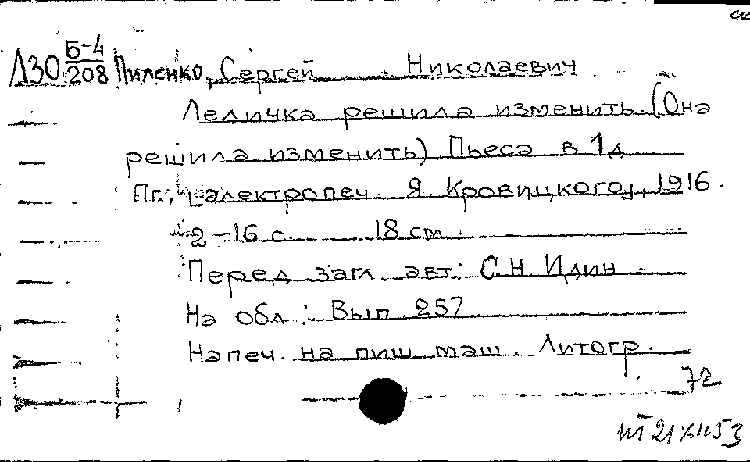 Л30 Б-4/208 Пиленко, Сергей Николаевич
Леличка решила изменить (Она
решила изменить) Пьеса в 1д
Пг., электропеч. Я. Кровицкого, 1916.
2-16 с. 18 см.
Перед загл. авт.: С.Н. Идин
На обл.: Вып 257
Напеч. на пиш. маш. Литогр.
72